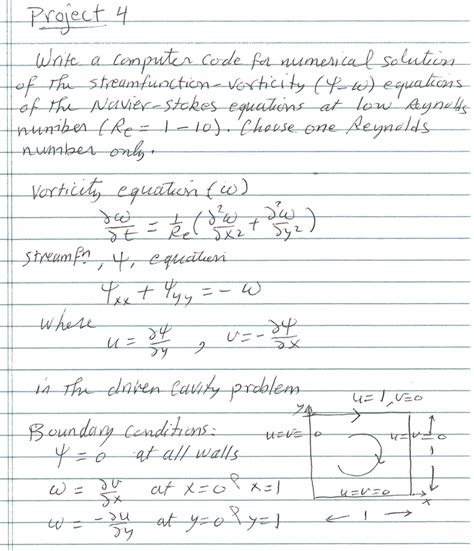 Project 4
Write a computer code for numerical solution
of the streamfunction-vorticity (ψ-ω) equations
of the Navier-Stokes equations at low Reynolds
number (Re = 1-10). Choose one Reynolds
number only.
Vorticity equation (ω)
∂ω/∂t = 1/Re (∂²ω/∂x² + ∂²ω/∂y²)
streamfn, ψ, equation
ψxx + ψyy = - ω
where
u = ∂ψ/∂y , v = - ∂ψ/∂x
in the driven cavity problem
Boundary conditions:
ψ = 0 at all walls
ω = ∂v/∂x at x=0 & x=1
ω = -∂u/∂y at y=0 & y=1
y
u=1, v=0
u=v=0
u=v=0
1
u=v=0
x
1